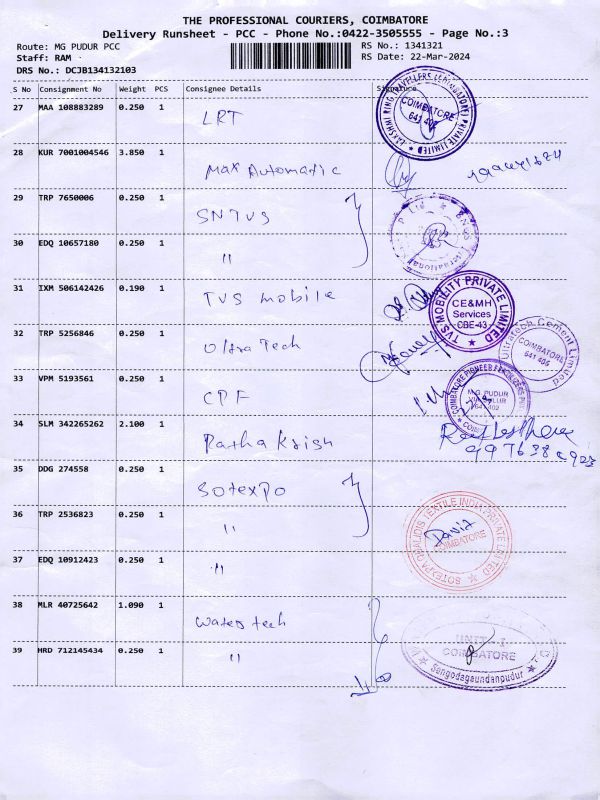 THE PROFESSIONAL COURIERS, COIMBATORE
Delivery Runsheet - PCC - Phone No.:0422-3505555 - Page No.:3
Route: MG PUDUR PCC
RS No.: 1341321
Staff: RAM
RS Date: 22-Mar-2024
DRS No.: DCJB134132103
S No Consignment No Weight PCS Consignee Details Signature
27 MAA 108883289 0.250 1 LRT
COIMBATORE
641 402
28 KUR 7001004546 3.850 1 Max Automatic
29 TRP 7650006 0.250 1 SNTVS
30 EDQ 10657180 0.250 1 "
31 IXM 506142426 0.190 1 TVS mobile
TVS MOBILITY PRIVATE LIMITED
CE&MH
Services
CBE-43
32 TRP 5256846 0.250 1 Ultra Tech
Ultratech Cement Limited
COIMBATORE
33 VPM 5193561 0.250 1 CPF
M.G. PUDUR
34 SLM 342265262 2.100 1 Ratha Krish
35 DDG 274558 0.250 1 Sotexpo
36 TRP 2536823 0.250 1 "
COIMBATORE
37 EDQ 10912423 0.250 1 "
38 MLR 40725642 1.090 1 Water tech
UNIT-I
COIMBATORE
39 HRD 712145434 0.250 1 "
Sengodagoundanpudur